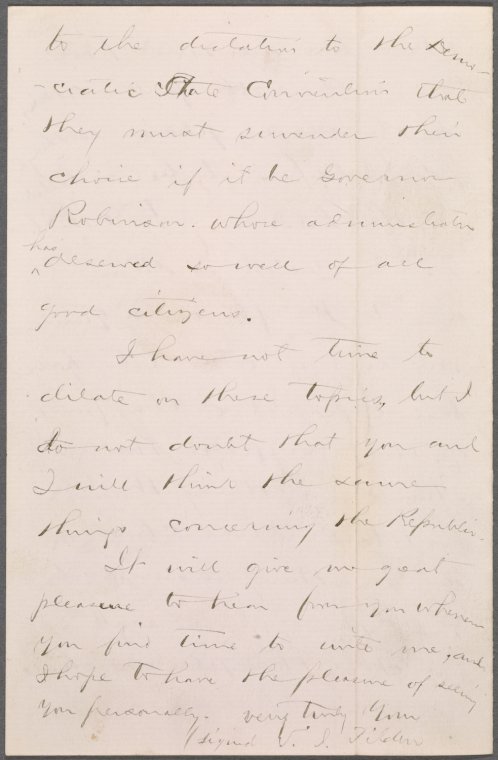 to the dictation to the Demo-
-cratic State Convention that
they must surrender their
choice if it be Governor
Robinson. whose administration
has
deserved so well of all
good citizens.
I have not time to
dilate on these topics, but I
do not doubt that you and
I will think the same
things concerning the Republic.
It will give me great
pleasure to hear from you whenever
you find time to write me, and
I hope to have the pleasure of seeing
you personally. very truly Your
(signed S. J. Tilden